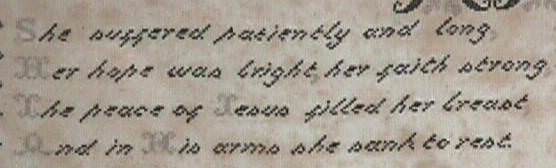 She suffered patiently and long,
Her hope was bright, her faith strong
The peace of Jesus filled her breast
And in His arms she sank to rest.